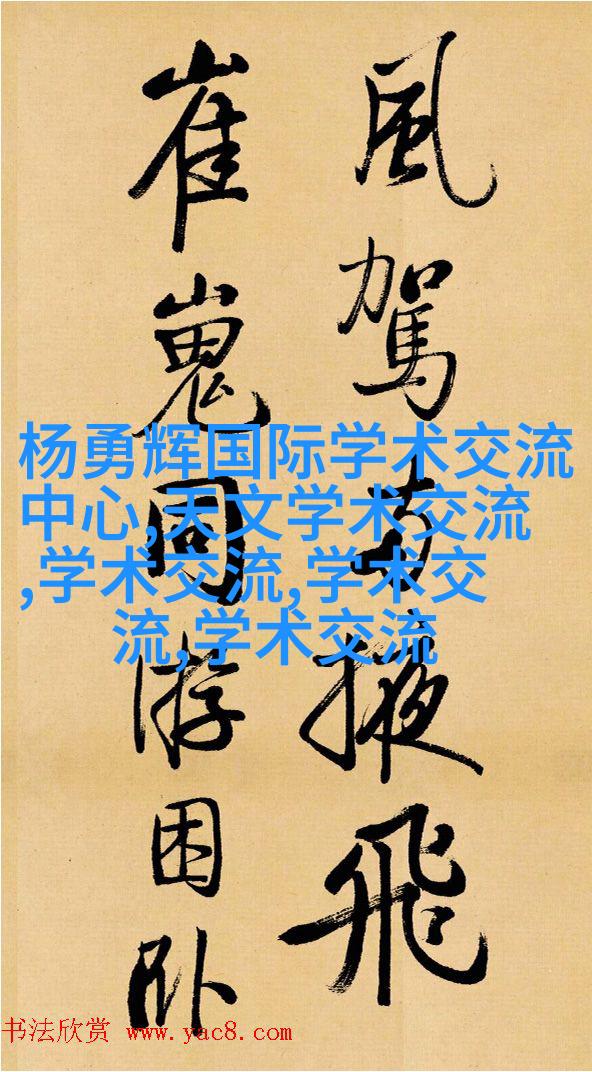 風駕掖飛
崔嵬同游困卧
杨勇辉国际学术交流
中心,天文学术交流
,学术交流,学术交
流,学术交流
书法欣赏 www.yac8.com